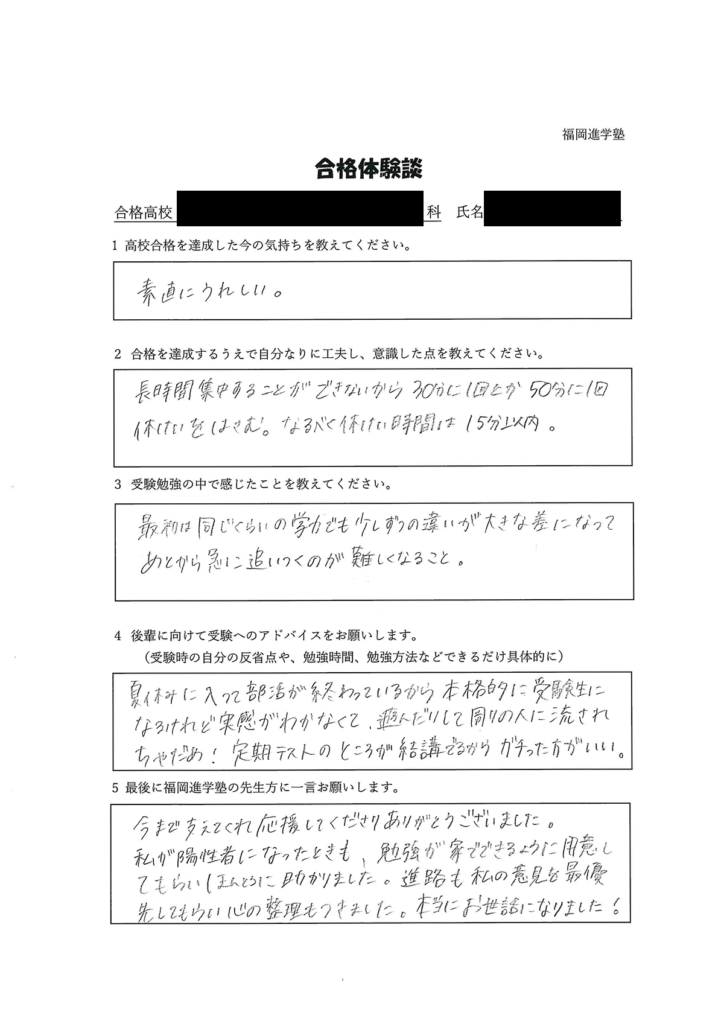 福岡進学塾
合格体験談
合格高校 科 氏名
1 高校合格を達成した今の気持ちを教えてください。
素直にうれしい。
2 合格を達成するうえで自分なりに工夫し、意識した点を教えてください。
長時間集中することができないから30分に1回とか50分に1回
休けいをはさむ。なるべく休けい時間は15分以内。
3 受験勉強の中で感じたことを教えてください。
最初は同じくらいの学力でも少しずつの違いが大きな差になって
あとから急に追いつくのが難しくなること。
4 後輩に向けて受験へのアドバイスをお願いします。
（受験時の自分の反省点や、勉強時間、勉強方法などできるだけ具体的に）
夏休みに入って部活が終わっているから本格的に受験生に
なるけれど実感がわかなくて、遊んだりして周りの人に流され
ちゃだめ！定期テストのところが結構でるからガチった方がいい。
5 最後に福岡進学塾の先生方に一言お願いします。
今まで支えてくれ応援してくださりありがとうございました。
私が陽性者になったときも、勉強が家でできるように用意し
てもらいほんとうに助かりました。進路も私の意見を最優
先してもらい心の整理もつきました。本当にお世話になりました！